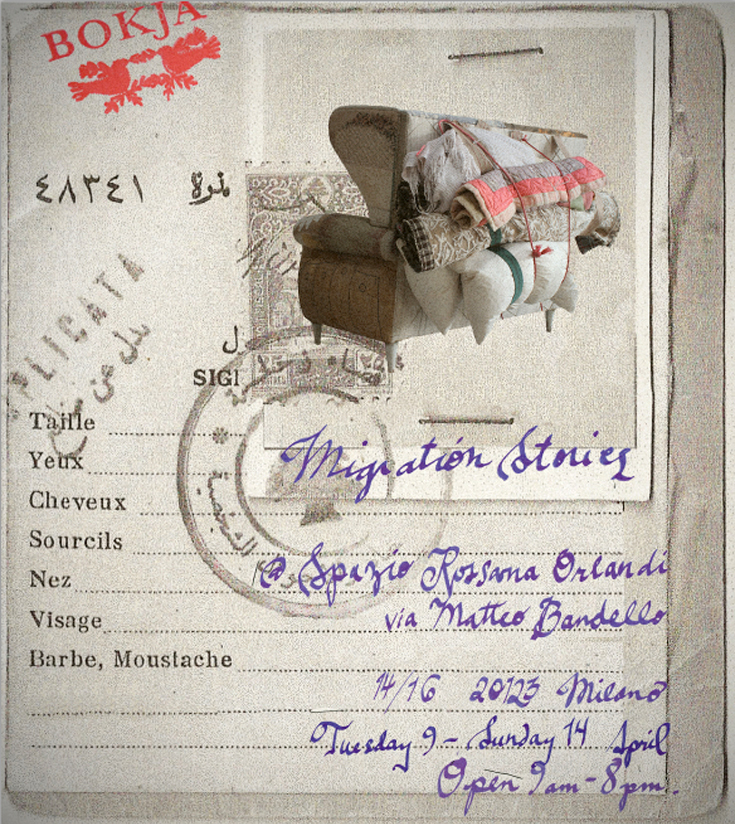 BOKJA
٤٨٣٤١ نمرة
PLICATA
بدل عن ضائع
ل
SIGI
Taille
Yeux
Migration Stories
Cheveux
Sourcils
@ Spazio Rossana Orlandi
Nez
via Matteo Bandello
Visage
Barbe, Moustache
14/16 20123 Milano
Tuesday 9 - Sunday 14 April
Open 9am - 8pm.